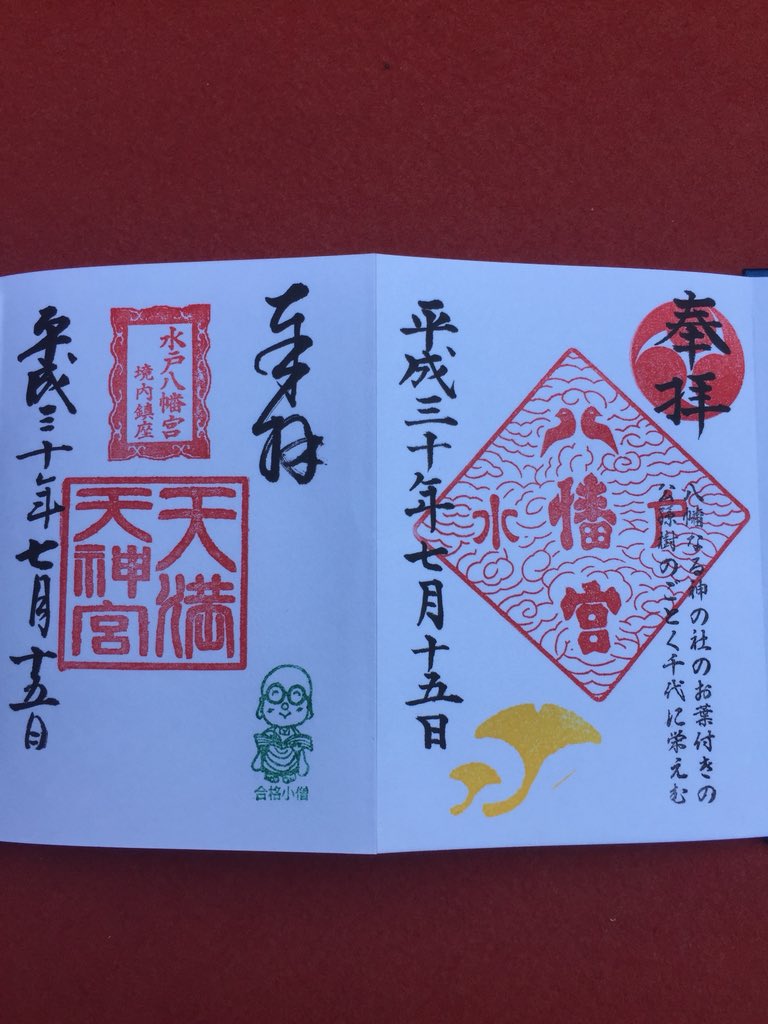 奉拝
八幡なる神の社のお葉付きの
公孫樹のごとく千代に栄えむ
八幡宮
水戸
平成三十年七月十五日
奉拝
水戸八幡宮
境内鎮座
天満
天神宮
合格小僧
平成三十年七月十五日